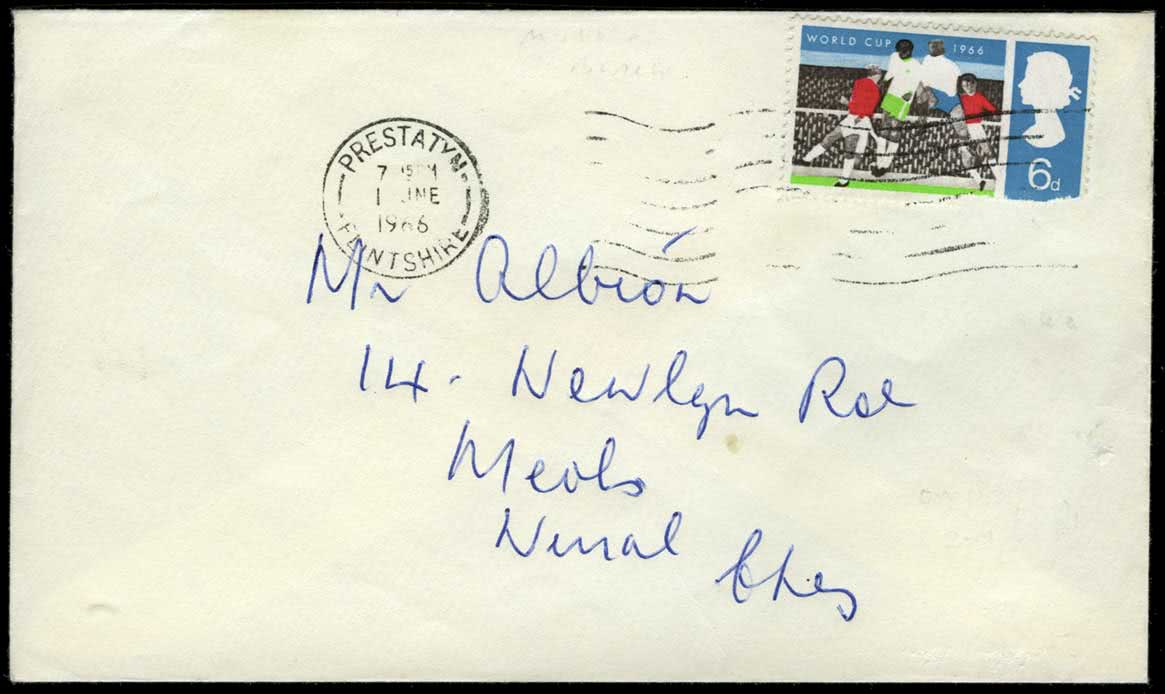 WORLD CUP 1966
6d
PRESTATYN
7 15PM
1 JNE
1966
FLINTSHIRE
Mr Albion
14. Newlyn Roe
Meols
Wirral Ches